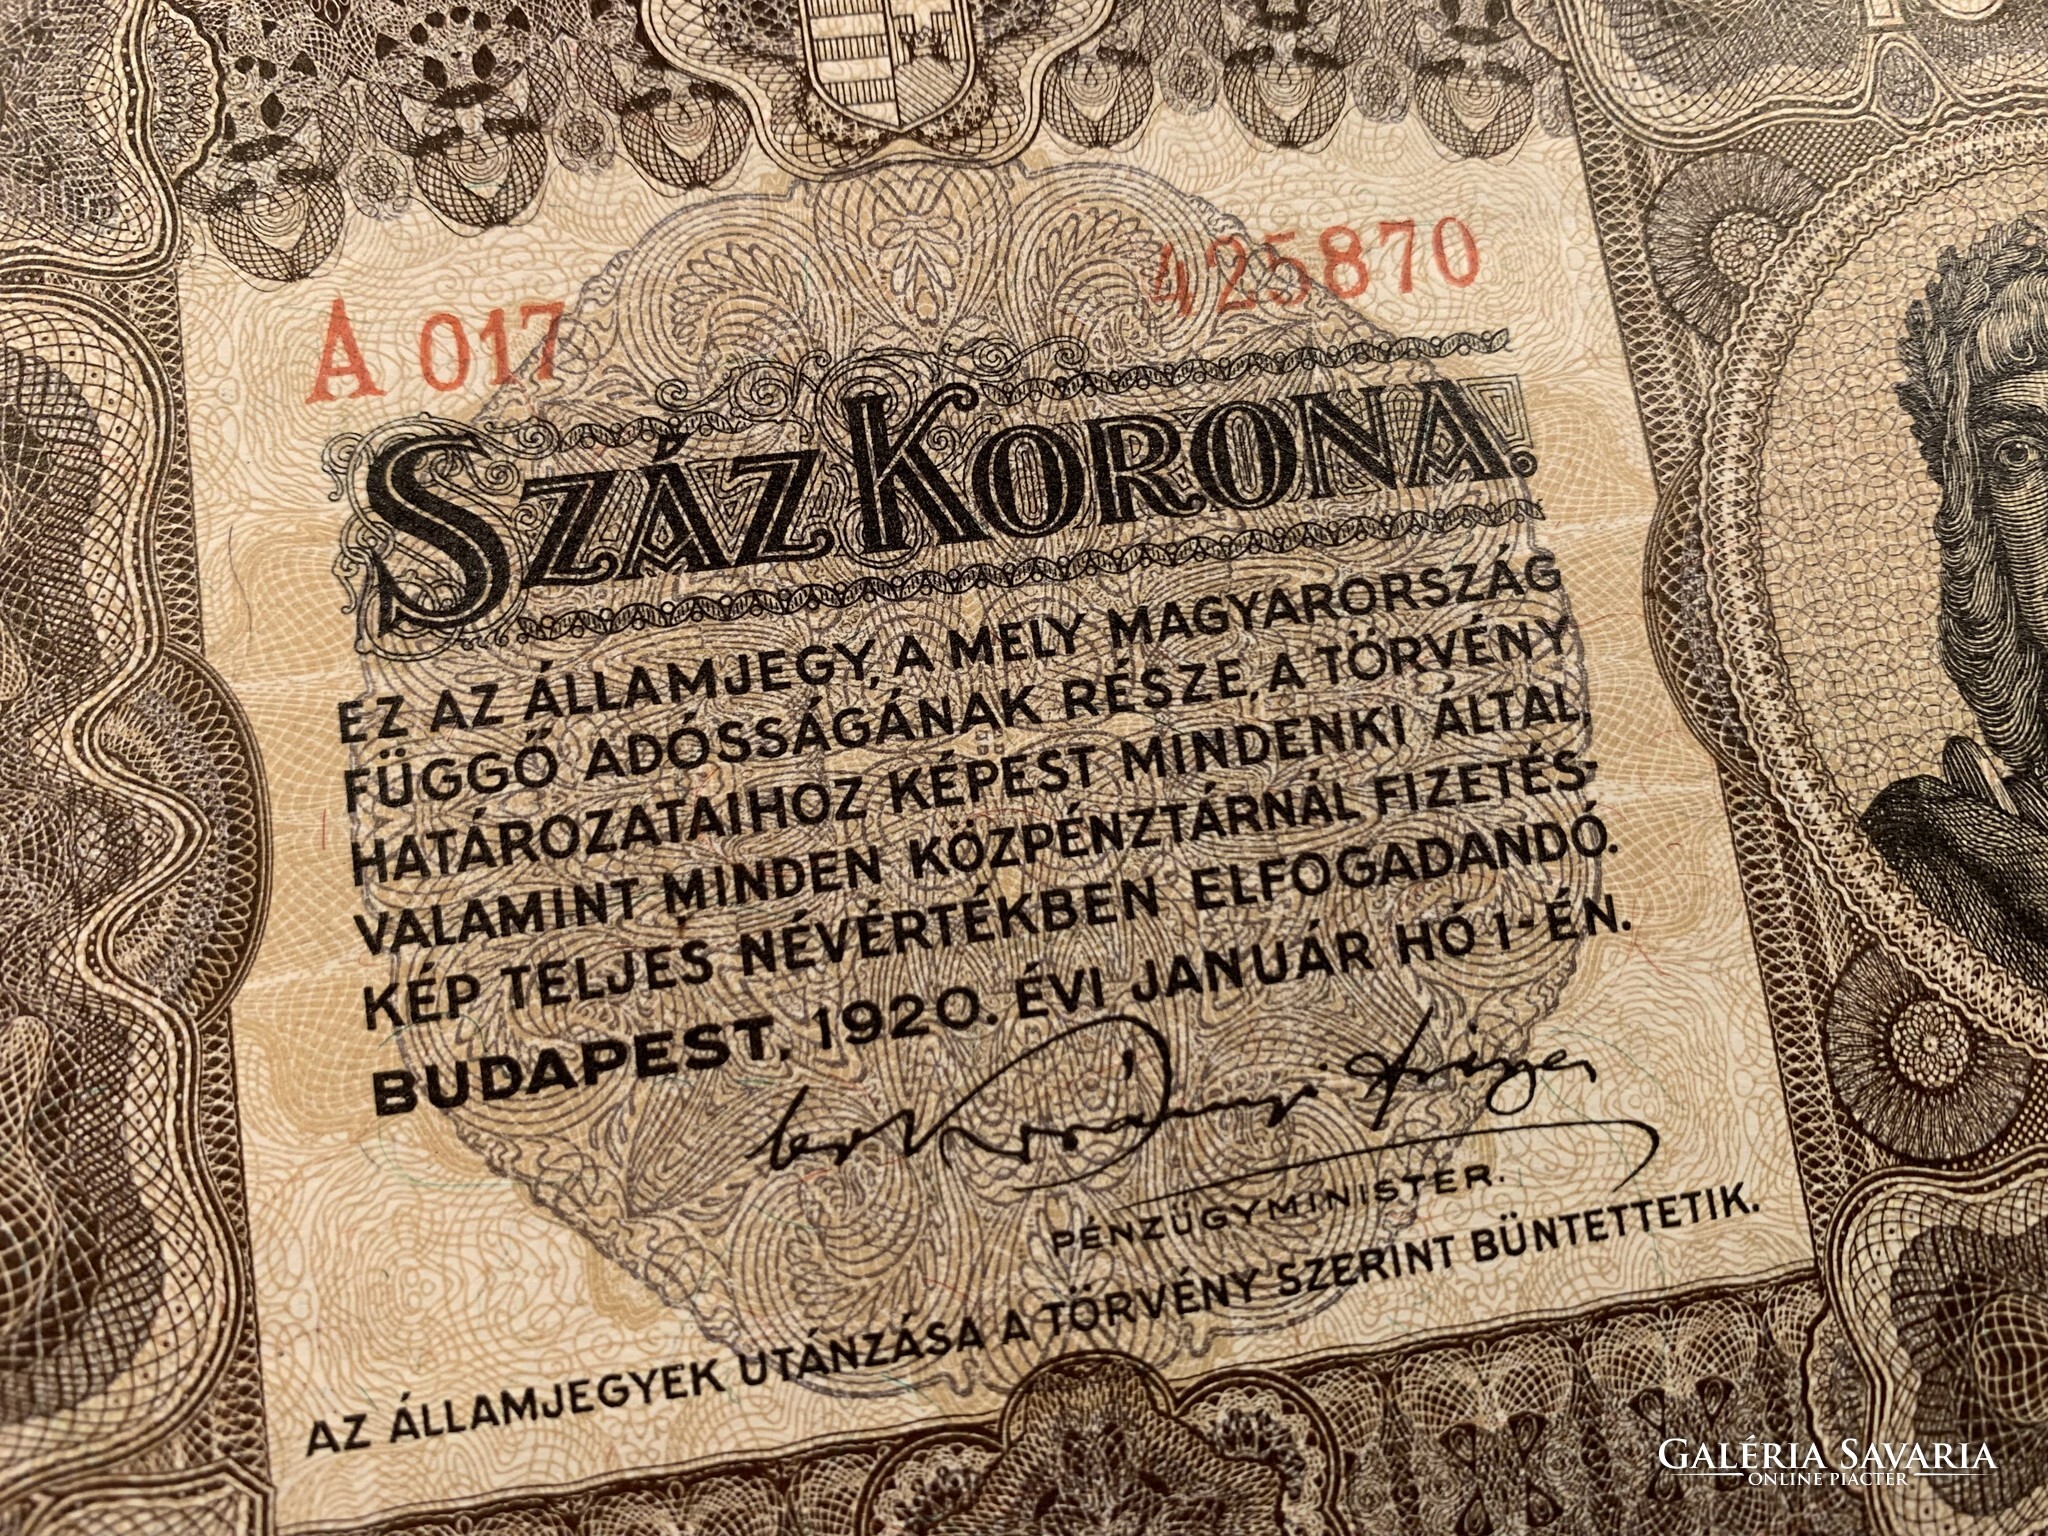 A 017 425870
SZÁZ KORONA.
EZ AZ ÁLLAMJEGY, A MELY MAGYARORSZÁG
FÜGGŐ ADÓSSÁGÁNAK RÉSZE, A TÖRVÉNY
HATÁROZATAIHOZ KÉPEST MINDENKI ÁLTAL,
VALAMINT MINDEN KÖZPÉNZTÁRNÁL FIZETÉS-
KÉP TELJES NÉVÉRTÉKBEN ELFOGADANDÓ.
BUDAPEST, 1920. ÉVI JANUÁR HÓ 1-ÉN.
PÉNZÜGYMINISTER.
AZ ÁLLAMJEGYEK UTÁNZÁSA A TÖRVÉNY SZERINT BÜNTETTETIK.
GALÉRIA SAVARIA
ONLINE PIACTÉR